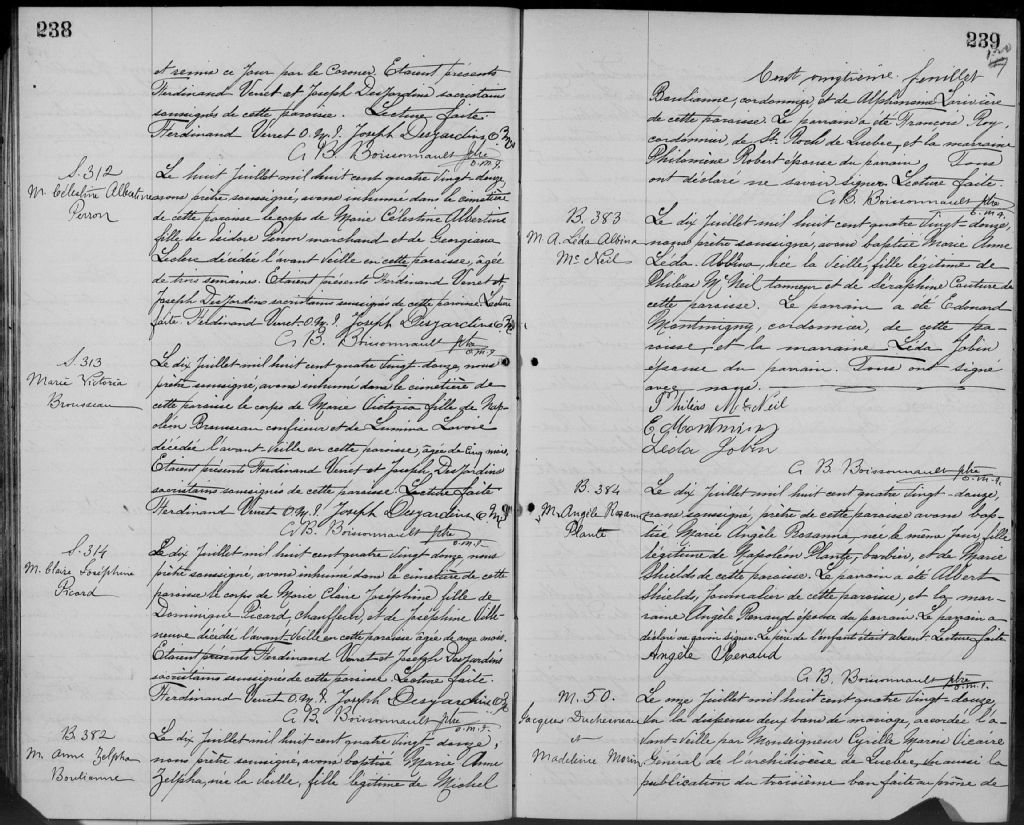 238
et remis ce jour par le Coroner. Etaient présents
Ferdinand Verret et Joseph DesJardins sacristains
soussignés de cette paroisse. Lecture faite
Ferdinand Verret O.M.I. Joseph Desjardins
G. B. Boissonnault ptre
o.m.i.
S. 312
M. Célestine Albertine
Perron
Le huit Juillet mil huit cent quatre vingt-douze,
nous prêtre soussigné, avons inhumé dans le cimetière
de cette paroisse le corps de Marie Célestine Albertine
fille de Isidore Perron marchand et de Georgiana
Leclerc décédée l'avant veille en cette paroisse, âgée
de trois semaines. Etaient présents Ferdinand Verret et
Joseph DesJardins sacristains soussignés de cette paroisse. Lecture
faite. Ferdinand Verret O.M.I. Joseph Desjardins
G. B. Boissonnault ptre
o.m.i.
S. 313
Marie Victoria
Brousseau
Le dix Juillet mil huit cent quatre vingt douze, nous
prêtre soussigné, avons inhumé dans le cimetière de
cette paroisse le corps de Marie Victoria fille de Nap-
oléon Brousseau confiseur et de Lumina Lavoie
décédée l'avant-veille en cette paroisse, âgée de cinq mois.
Etaient présents Ferdinand Verret et Joseph DesJardins
sacristains soussignés de cette paroisse. Lecture faite
Ferdinand Verret O.M.I. Joseph Desjardins
G. B. Boissonnault ptre
o.m.i.
S. 314
M. Claire Joséphine
Picard
Le dix Juillet mil huit cent quatre vingt douze, nous
prêtre soussigné, avons inhumé dans le cimetière de cette
paroisse le corps de Marie Claire Joséphine fille de
Dominique Picard, chauffeur, et de Joséphine Ville-
neuve décédée l'avant-veille en cette paroisse âgée de onze mois.
Etaient présents Ferdinand Verret et Joseph DesJardins
sacristains soussignés de cette paroisse. Lecture faite.
Ferdinand Verret O.M.I. Joseph Desjardins
G. B. Boissonnault ptre
o.m.i.
B. 382
M. Anne Zelpha
Boulianne
Le dix Juillet mil huit cent quatre vingt-douze,
nous prêtre soussigné, avons baptisé Marie Anne
Zelpha, née la veille, fille légitime de Michel
239
Cent vingtième feuillet
Boulianne, cordonnier, et de Alphonsine Larivière
de cette paroisse. Le parrain a été François Roy,
cordonnier, de St. Roch de Quebec, et la marraine
Philomène Robert épouse du parrain. Tous
ont déclaré ne savoir signer. Lecture faite.
G. B. Boissonnault ptre
o.m.i.
B. 383
M. A. Léda Albina
Mc Neil
Le dix Juillet mil huit cent quatre vingt-douze,
nous prêtre soussigné, avons baptisé Marie Anne
Léda Albina, née la veille, fille légitime de
Philéas Mc Neil tanneur et de Séraphine Couture de
cette paroisse. Le parrain a été Edouard
Montmigny, cordonnier, de cette pa-
roisse, et la marraine Léda Jobin
épouse du parrain. Tous ont signé
avec nous.
Philéas McNeil
E Montminy
Léda Jobin
G. B. Boissonnault ptre
o.m.i.
B. 384
M. Angèle Rosanna
Plante
Le dix Juillet mil huit cent quatre vingt-douze,
nous soussigné, prêtre de cette paroisse avons bap-
tisé Marie Angèle Rosanna, née le même jour, fille
légitime de Napoléon Plante, barbier, et de Marie
Shields de cette paroisse. Le parrain a été Albert
Shields, journalier de cette paroisse, et la mar-
raine Angèle Renaud épouse du parrain. Le parrain a
déclaré ne savoir signer. Le père de l'enfant était absent. Lecture faite
Angèle Renaud
G. B. Boissonnault ptre
o.m.i.
M. 50.
Jacques Duchesneau
et
Madeleine Morin
Le onze Juillet mil huit cent quatre vingt-douze,
Vu la dispense deux bans de mariage, accordée l'a-
vant-veille par Monseigneur Cyrille Marois Vicaire
Général de l'archidiocèse de Quebec, vu aussi la
publication du troisième ban faite au prône de